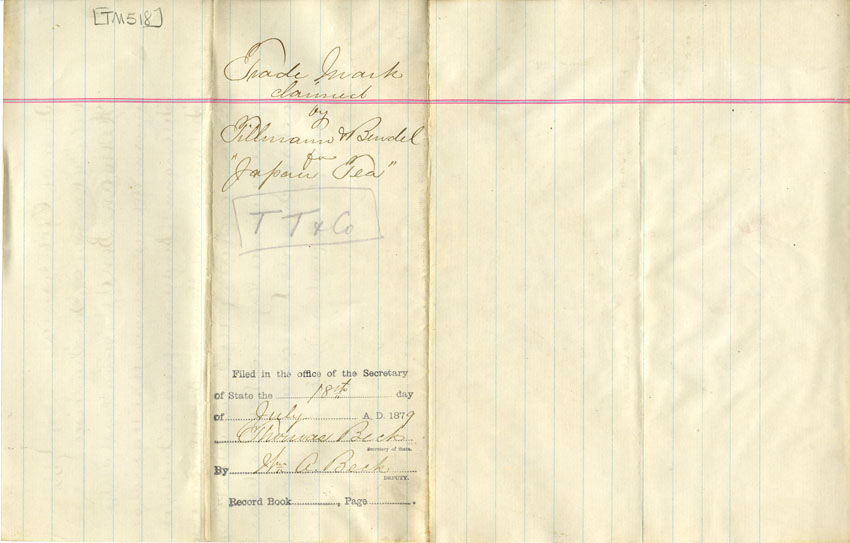 [TM518]
Trade Mark
claimed
by
Tillmann & Bendel
for
"Japan Tea"
T T & Co
Filed in the office of the Secretary
of State the 18th day
of July A. D. 1879
Thomas Beck
Secretary of State.
By Wm A. Beck
DEPUTY.
Record Book , Page .